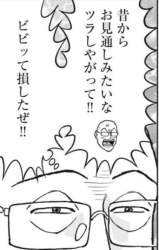 昔から
お見通しみたいな
ツラしやがって!!
ビビッて損したぜ!!